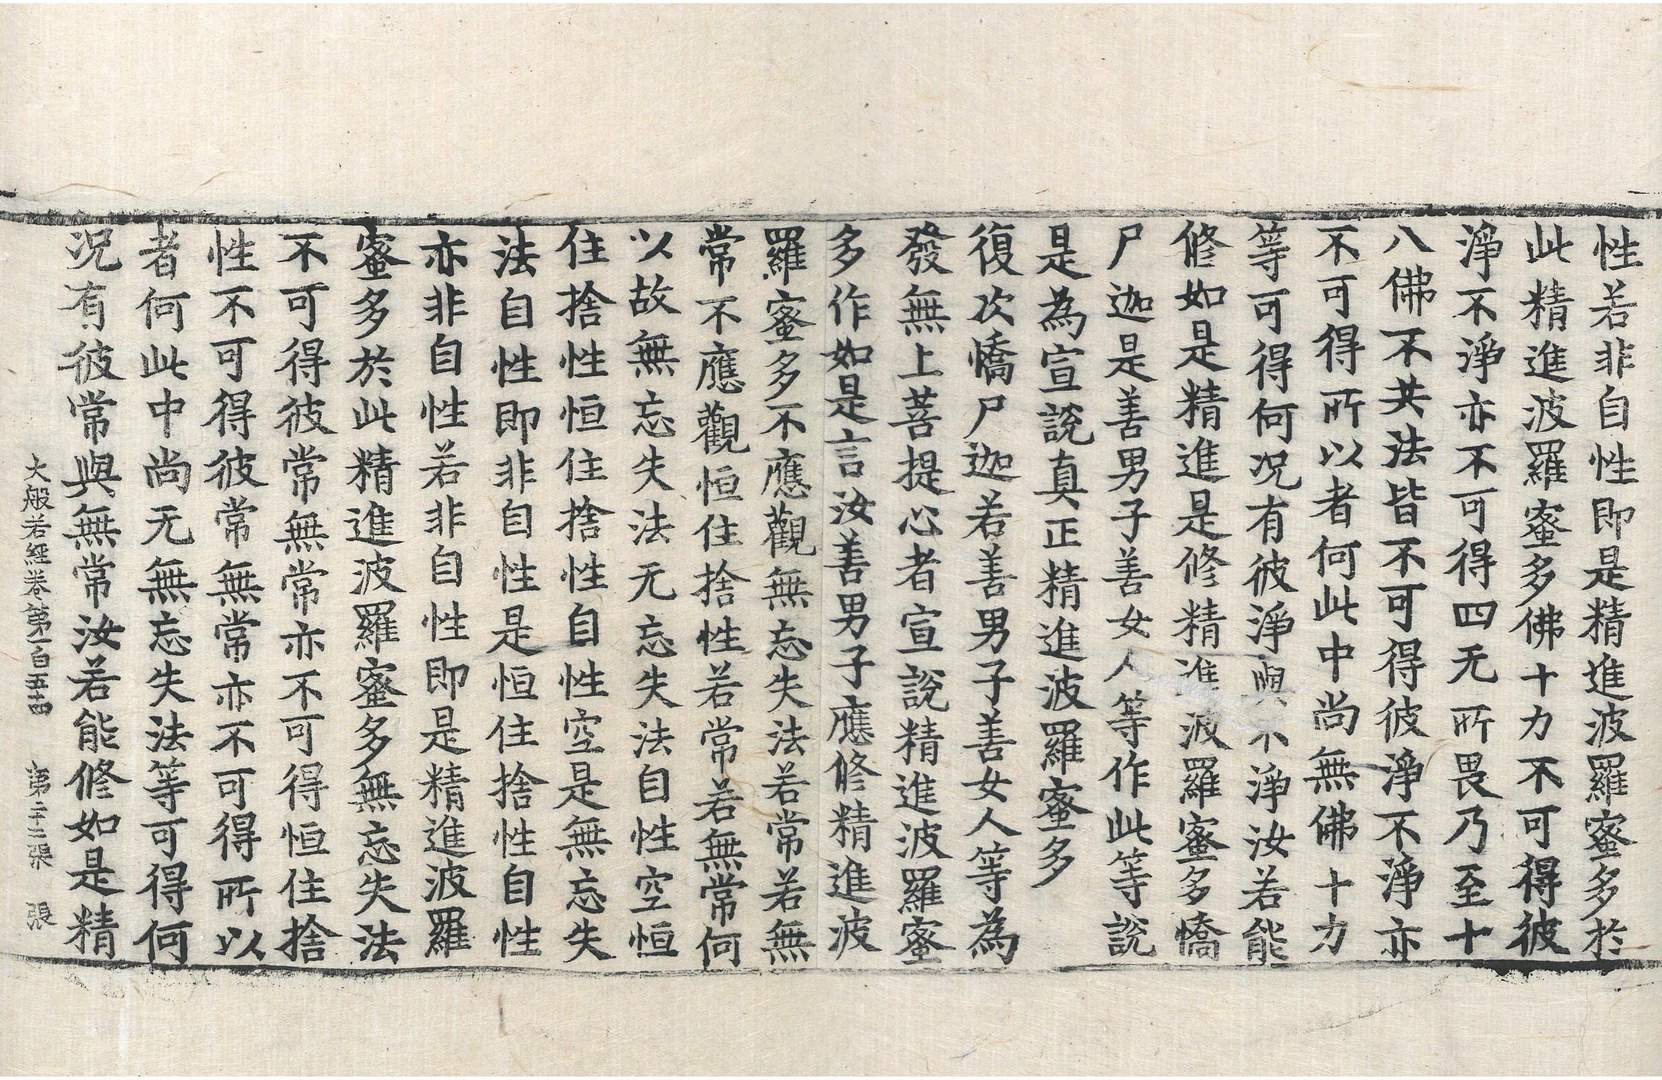 性若非自性即是精進波羅蜜多於
此精進波羅蜜多佛十力不可得彼
淨不淨亦不可得四无所畏乃至十
八佛不共法皆不可得彼淨不淨亦
不可得所以者何此中尚無佛十力
等可得何况有彼淨與不淨汝若能
修如是精進是修精進波羅蜜多憍
尸迦是善男子善女人等作此等說
是為宣說真正精進波羅蜜多
復次憍尸迦若善男子善女人等為
發無上菩提心者宣說精進波羅蜜
多作如是言汝善男子應修精進波
羅蜜多不應觀無忘失法若常若無
常不應觀恒住捨性若常若無常何
以故無忘失法无忘失法自性空恒
住捨性恒住捨性自性空是無忘失
法自性即非自性是恒住捨性自性
亦非自性若非自性即是精進波羅
蜜多於此精進波羅蜜多無忘失法
不可得彼常無常亦不可得恒住捨
性不可得彼常無常亦不可得所以
者何此中尚无無忘失法等可得何
况有彼常與無常汝若能修如是精
大般若經卷第一百五十四 第二十二張 張